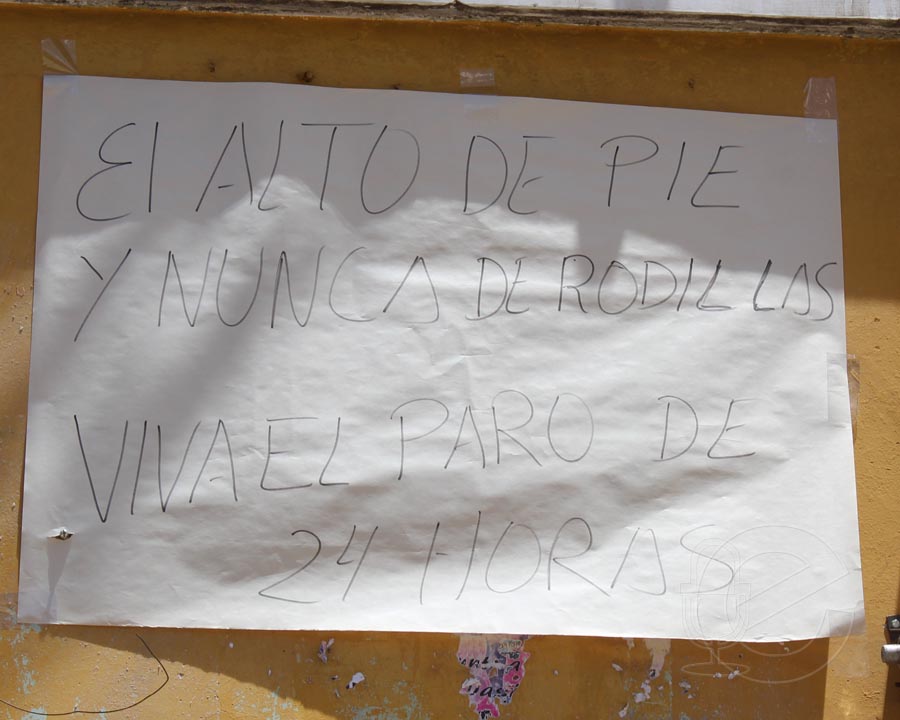 El ALTO DE PIE
Y NUNCA DE RODILLAS
VIVA EL PARO DE
24 HORAS